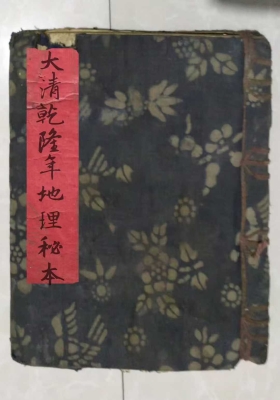 大清乾隆年地理秘本